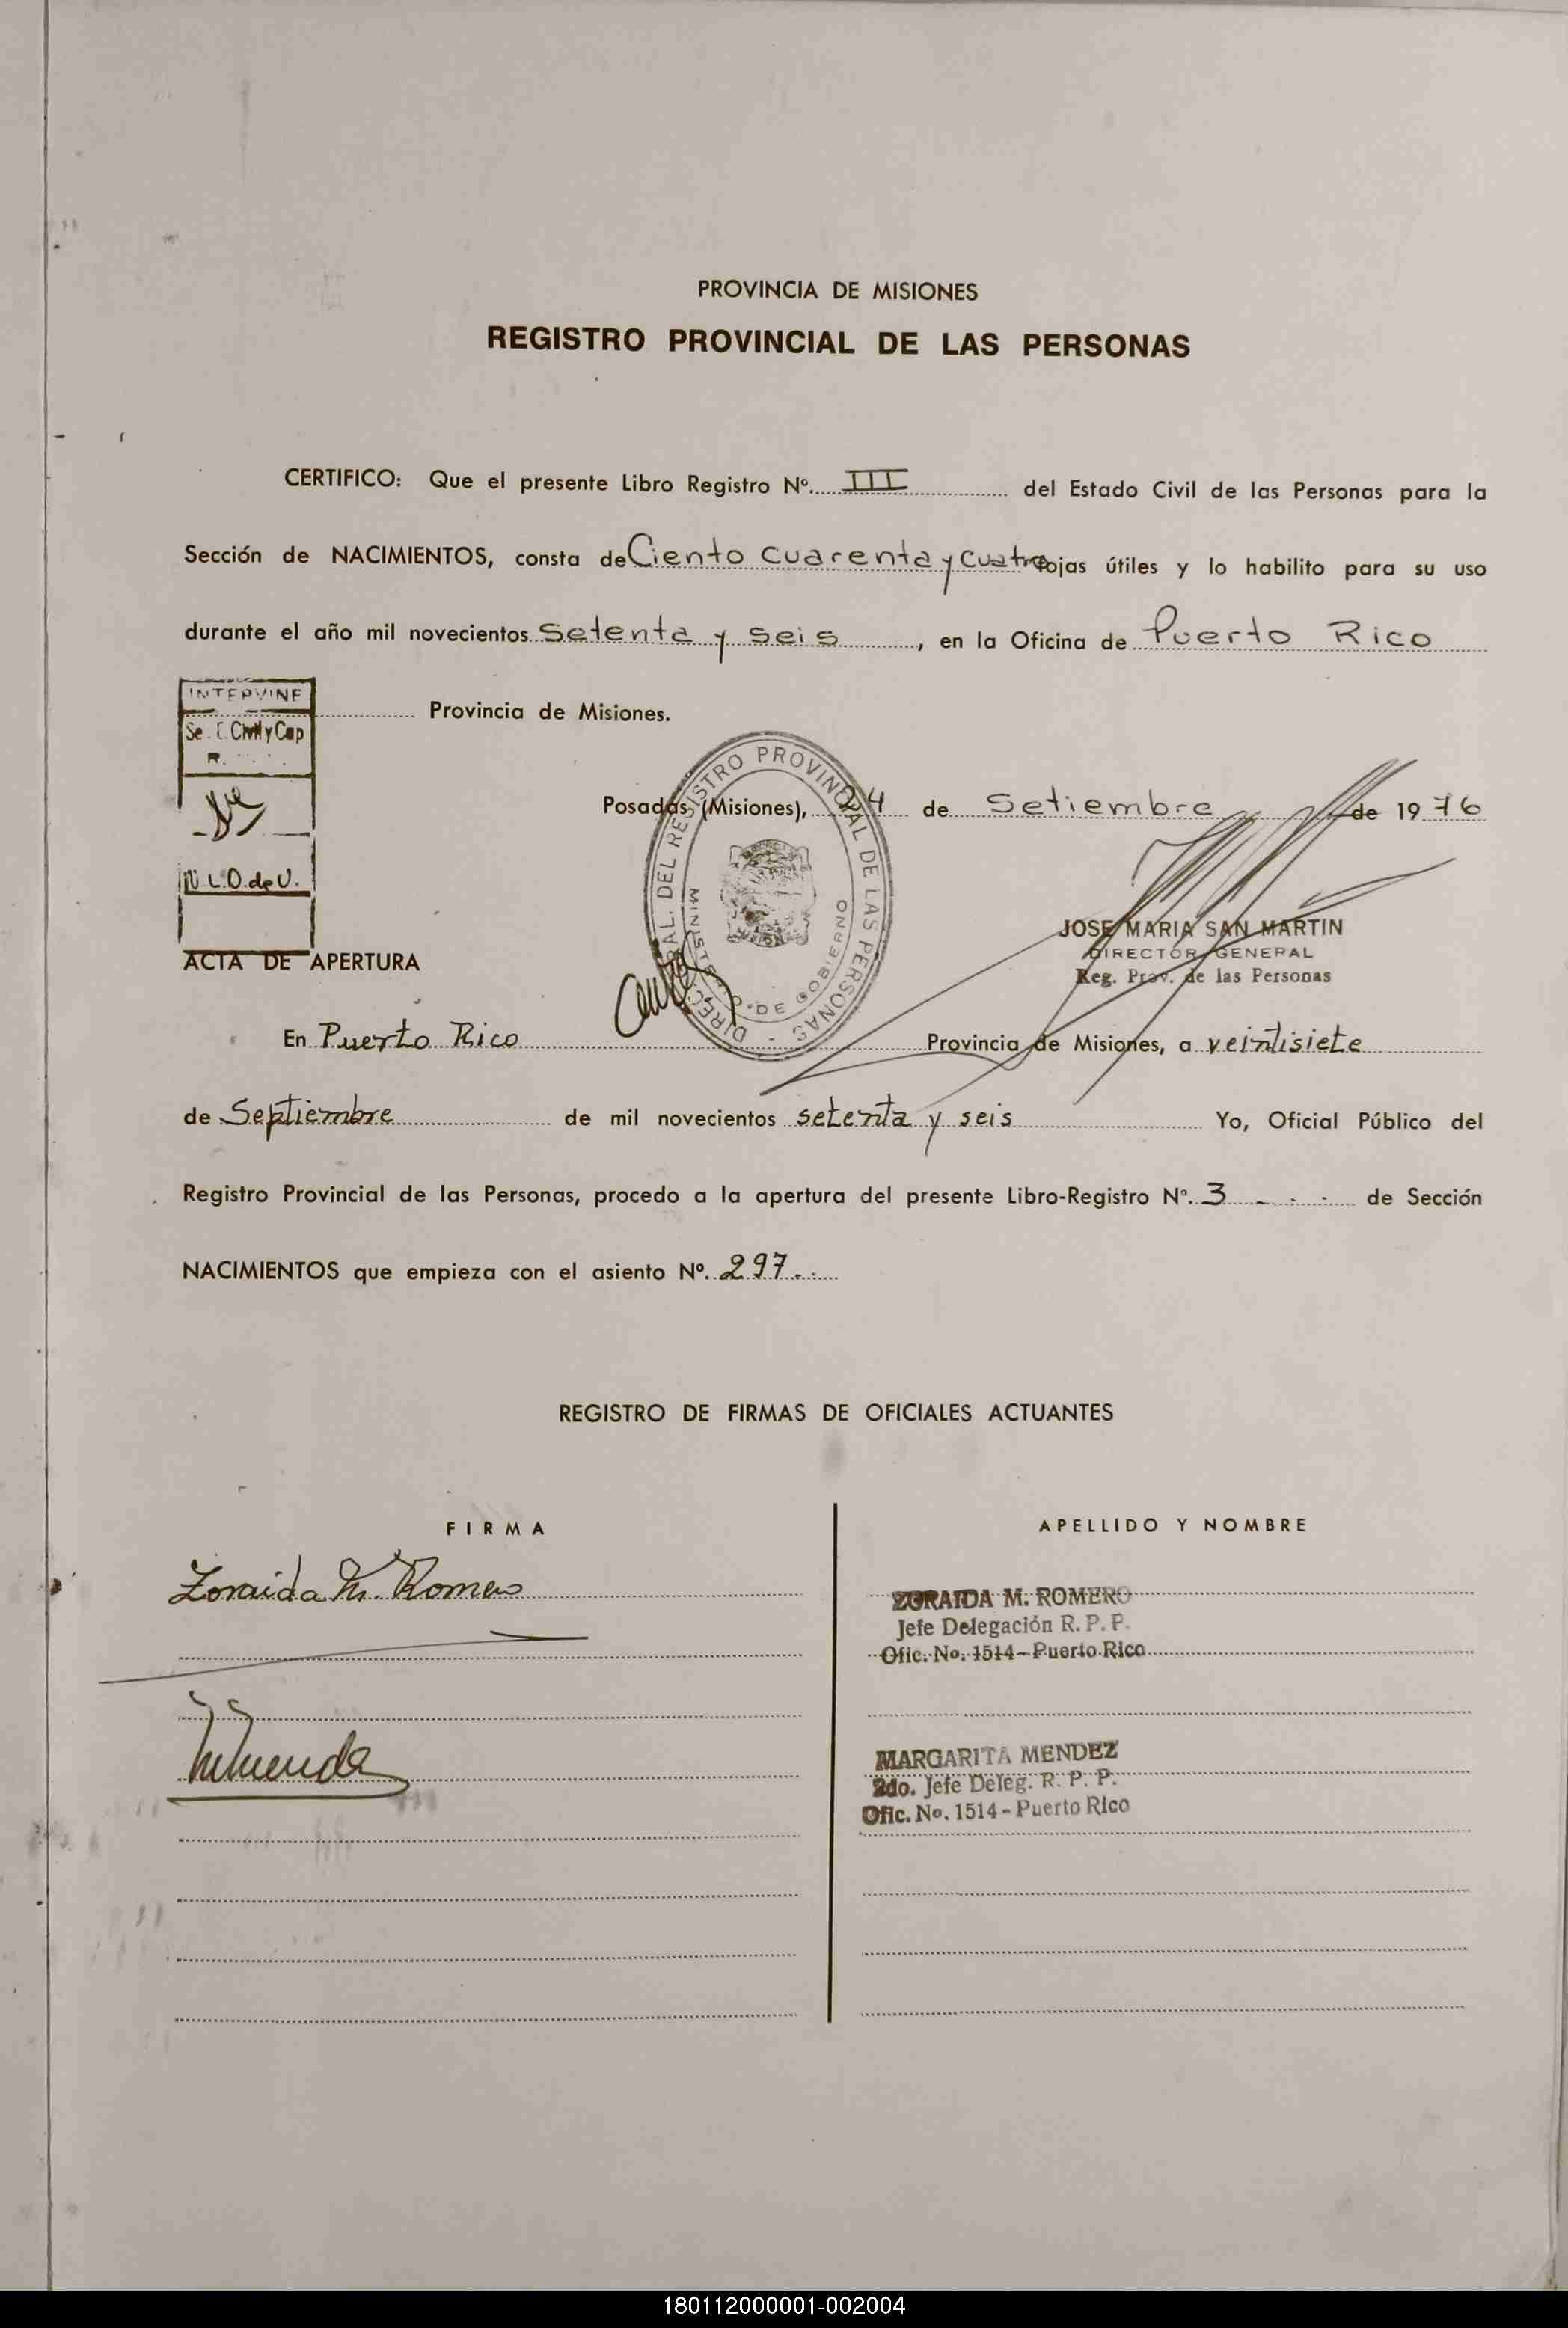 PROVINCIA DE MISIONES
REGISTRO PROVINCIAL DE LAS PERSONAS
CERTIFICO: Que el presente Libro Registro Nº. III del Estado Civil de las Personas para la
Sección de NACIMIENTOS, consta de Ciento cuarenta y cuatro ojas útiles y lo habilito para su uso
durante el año mil novecientos Setenta y seis, en la Oficina de Puerto Rico
Provincia de Misiones.
INTERVINE
Se. C. Civil y Cap
R.
N.L.O. de U.
Posadas (Misiones), 24 de Setiembre de 1976
DIREC. GRAL. DEL REGISTRO PROVINCIAL DE LAS PERSONAS -
MINISTERIO DE GOBIERNO
JOSE MARIA SAN MARTIN
DIRECTOR GENERAL
Reg. Prov. de las Personas
ACTA DE APERTURA
En Puerto Rico Provincia de Misiones, a veintisiete
de Septiembre de mil novecientos setenta y seis Yo, Oficial Público del
Registro Provincial de las Personas, procedo a la apertura del presente Libro-Registro Nº. 3 - . - de Sección
NACIMIENTOS que empieza con el asiento Nº. 297.-
REGISTRO DE FIRMAS DE OFICIALES ACTUANTES
FIRMA
APELLIDO Y NOMBRE
Zoraida M. Romero
ZORAIDA M. ROMERO
Jefe Delegación R. P. P.
Ofic. No. 1514 - Puerto Rico
MARGARITA MENDEZ
2do. Jefe Deleg. R. P. P.
Ofic. No. 1514 - Puerto Rico
180112000001-002004